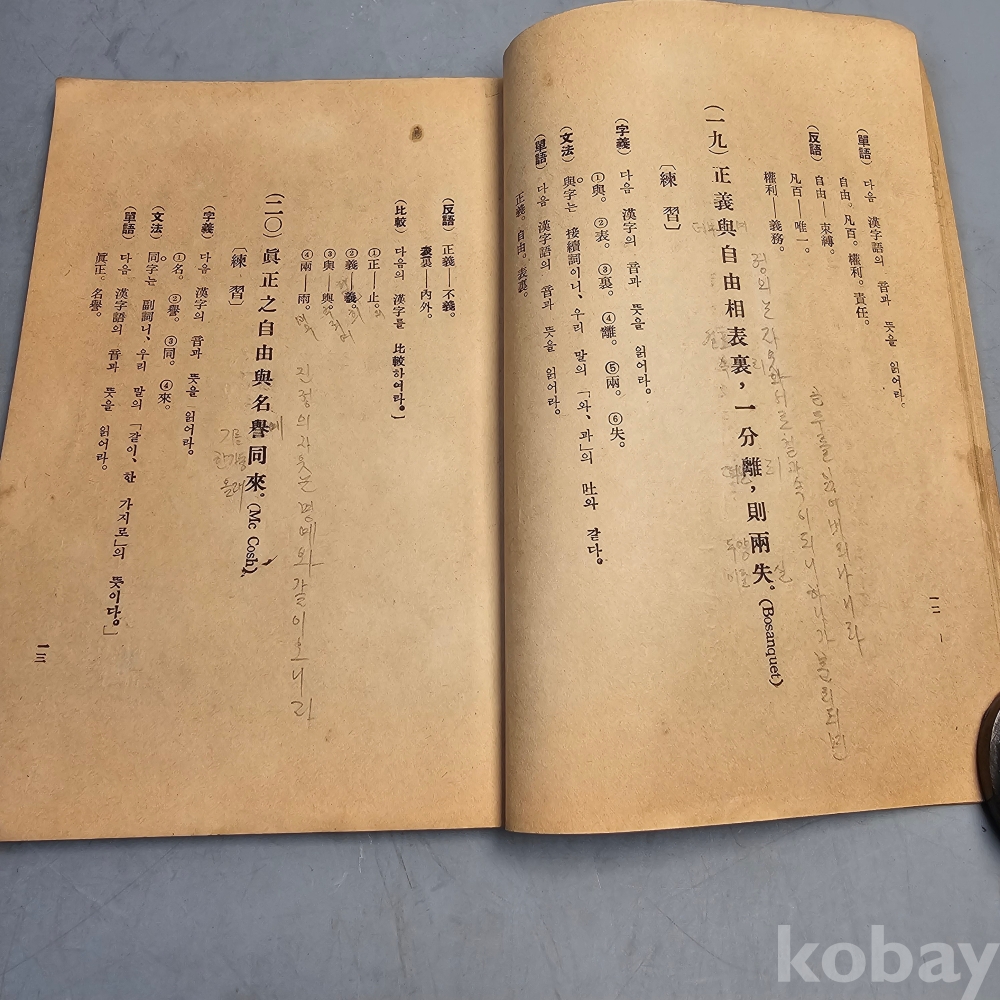 (單語) 다음 漢字語의 音과 뜻을 읽어라.
自由。凡百。權利。責任。
(反語) 自由——束縛。
凡百——唯一。
權利——義務。
(一九) 正義與自由相表裏，一分離，則兩失。(Bosanquet)
정의는 자유와 서로
하나가 분리되면
〔練習〕
(字義) 다음 漢字의 音과 뜻을 읽어라.
①與。 ②表。 ③裏。 ④離。 ⑤兩。 ⑥失。
(文法) 與字는 接續詞이니、우리 말의 「와、과」의 吐와 같다。
(單語) 다음 漢字語의 音과 뜻을 읽어라.
正義。自由。表裏。
一二
(反語) 正義——不義。
表裏——內外。
(比較) 다음의 漢字를 比較하여라。〕
①正——止。
②義——義。
③與——興。
④兩——雨。
진정의 자유는 명예와 같이 오나니라
(二〇) 眞正之自由與名譽同來。(Mc Cosh)
예
기름
한가동
올래
〔練習〕
(字義) 다음 漢字의 音과 뜻을 읽어라.
①名。 ②譽。 ③同。 ④來。
(文法) 同字는 副詞니、우리 말의 「같이、한 가지로」의 뜻이다。」
(單語) 다음 漢字語의 音과 뜻을 읽어라.
眞正。名譽。
一三
kobay